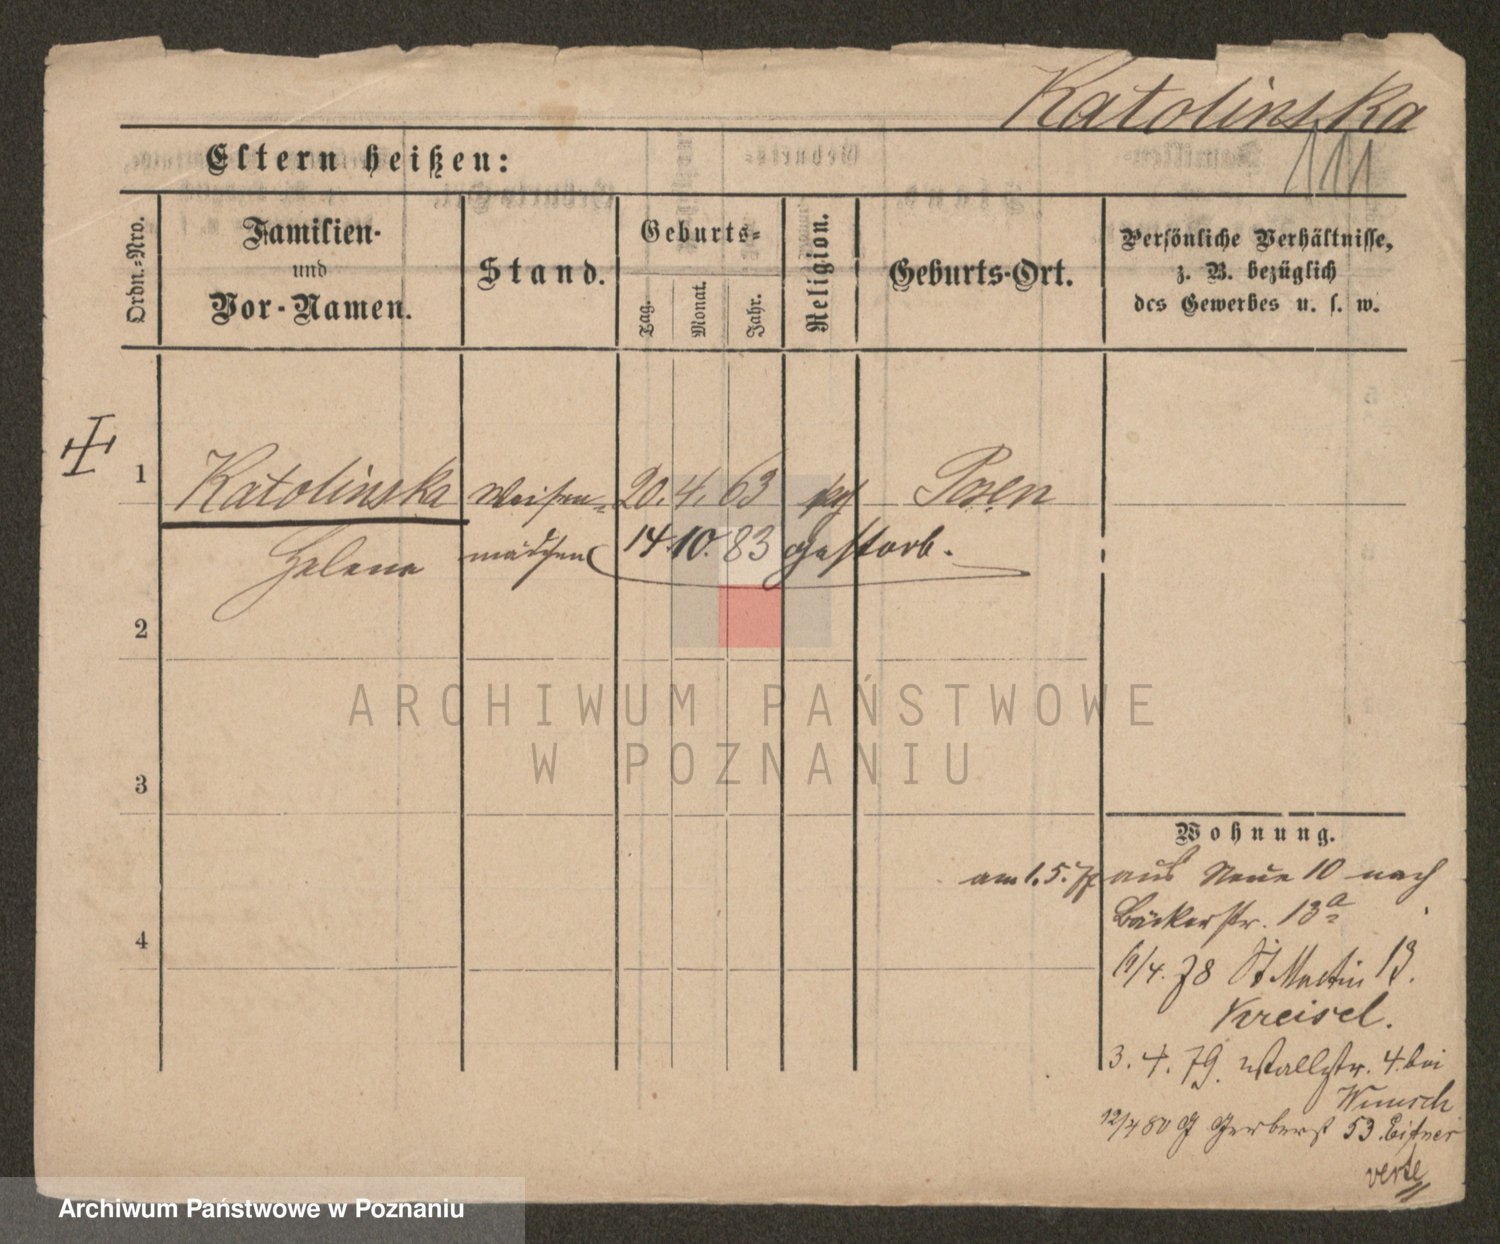 Katolinska
111
Eltern heißen:
Ordn.-Nro.
Familien-
und
Vor-Namen.
Stand.
Geburts-
Tag.
Monat.
Jahr.
Religion.
Geburts-Ort.
Persönliche Verhältnisse,
z. B. bezüglich
des Gewerbes u. s. w.
1
Katolinska Waisen- 20. 4. 63 Posen
Helena mädchen 14. 10. 83 gestorb.
2
3
4
ARCHIWUM PAŃSTWOWE
W POZNANIU
Wohnung.
am 1. 5. 77 aus Neue 10 nach
Bäckerstr. 13a
/4. 78 St Martin 13.
Kreisel.
3. 4. 79. Wallstr. 4. bei
Wunsch
12/4 80 Gerberst 53.
verte
Archiwum Państwowe w Poznaniu